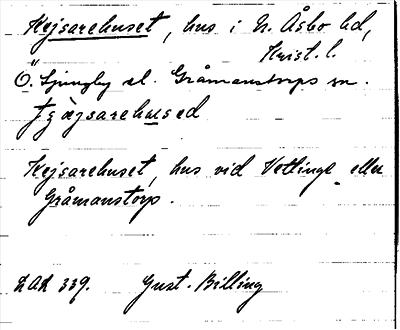 Kejsarehuset, hus i N. Åsbo hd,
Krist. l.
Ö. Ljungby el. Gråmanstorps sn.
Kejsarehuset, hus vid Vetlinge eller
Gråmanstorp.
LAL 339. Gust. Billing